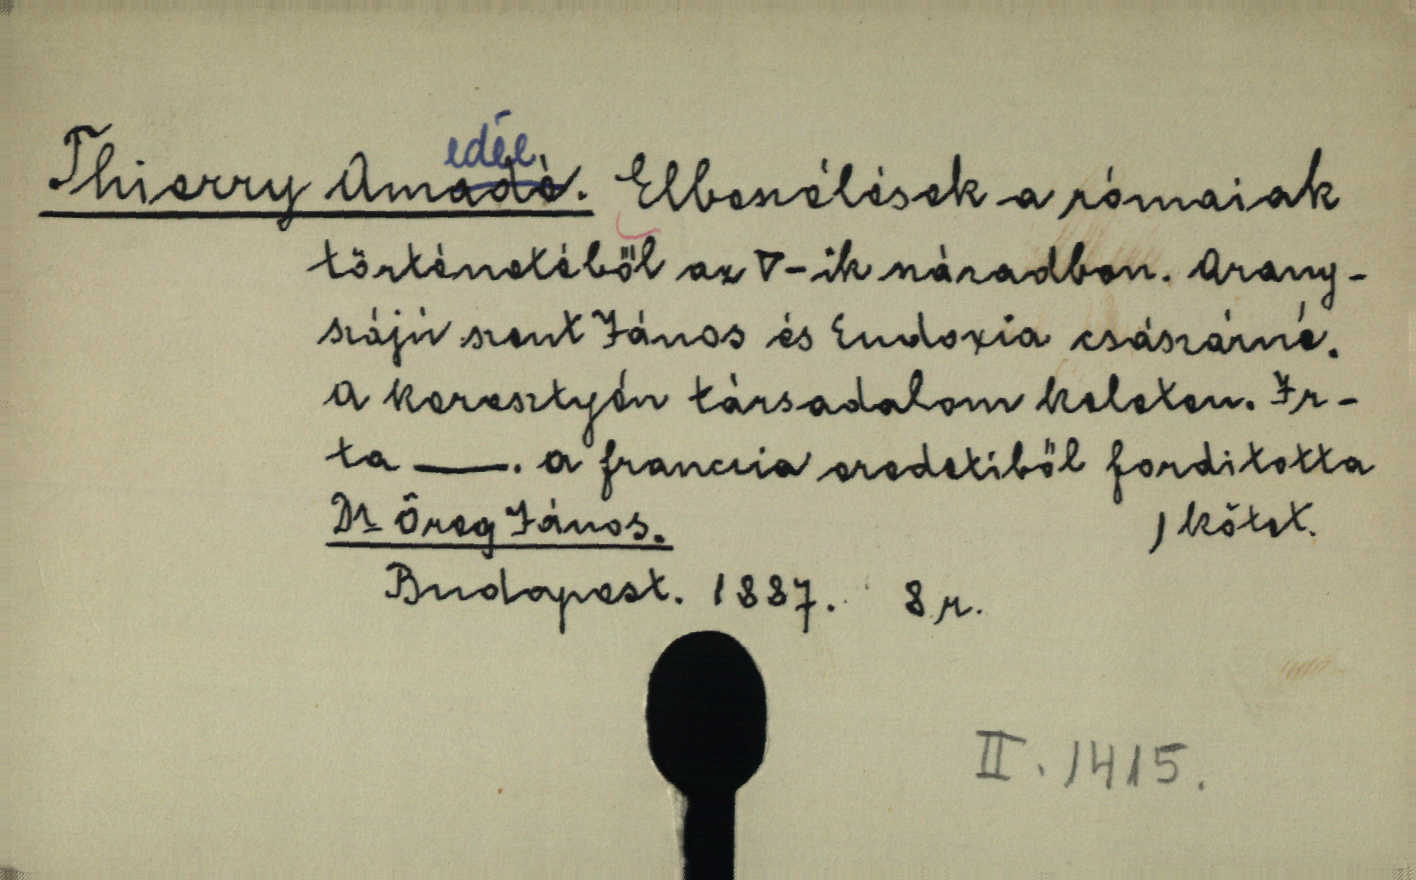 edée
Thierry Amadé. Elbeszélések a rómaiak
történetéből az V-ik században. Arany-
szájú szent János és Eudoxia császárné.
A keresztyén társadalom keleten. Ir-
ta —. A francia eredetiből forditotta
Dr Öreg János. 1 kötet.
Budapest. 1887. 8 r.
II. 1415.